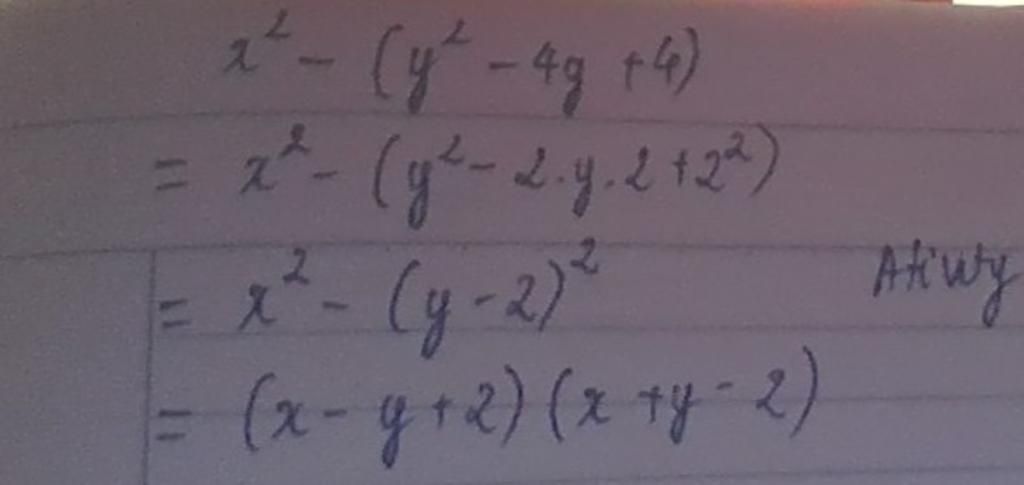 x² - (y² - 4y + 4)
= x² - (y² - 2.y.2 + 2²)
= x² - (y - 2)²
= (x - y + 2) (x + y - 2)